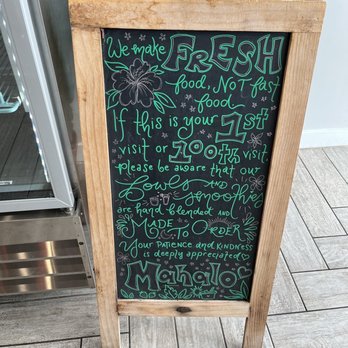 We make FRESH
food, NOT fast
food
If this is your 1st
visit or 100th visit
please be aware that our
Bowls AND smoothies
are hand blended AND
MADE TO ORDER
Your PATIENCE and KINDNESS
is deeply appreciated
Mahalo